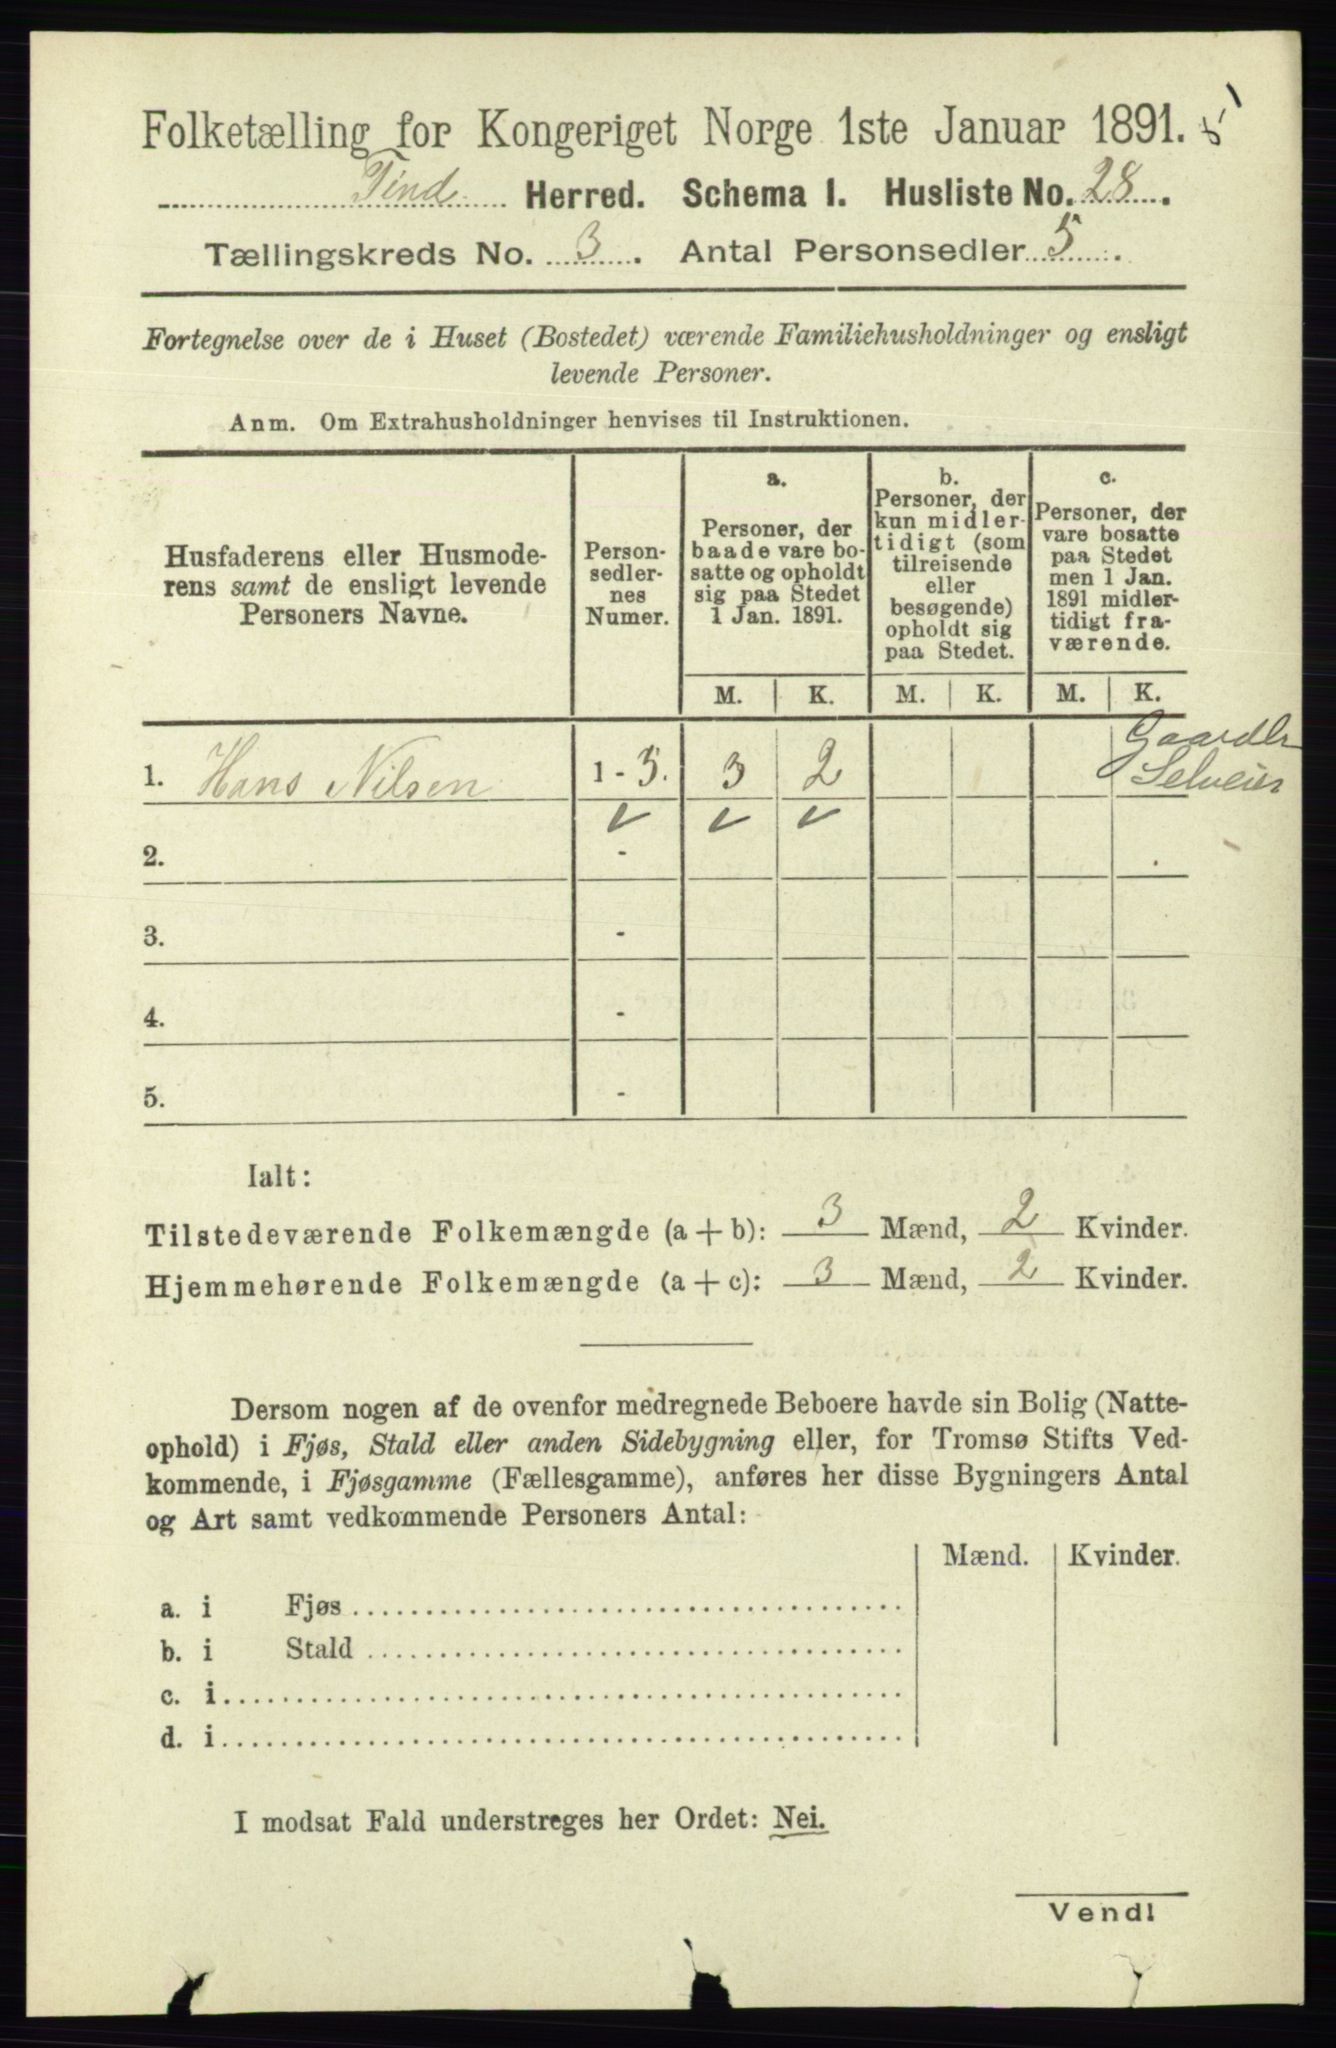 Folketælling for Kongeriget Norge 1ste Januar 1891. 5
Tind Herred. Schema I. Husliste No. 28.
Tællingskreds No. 3. Antal Personsedler 5.
Fortegnelse over de i Huset (Bostedet) værende Familiehusholdninger og ensligt
levende Personer.
Anm. Om Extrahusholdninger henvises til Instruktionen.
Husfaderens eller Husmode-
rens samt de ensligt levende
Personers Navne.
Person-
sedler-
nes
Numer.
a.
Personer, der
baade vare bo-
satte og opholdt
sig paa Stedet
1 Jan. 1891.
b.
Personer, der
kun midler-
tidigt (som
tilreisende
eller
besøgende)
opholdt sig
paa Stedet.
c.
Personer, der
vare bosatte
paa Stedet
men 1 Jan.
1891 midler-
tidigt fra-
værende.
M. K. M. K. M. K.
Gaardbr
Selveier
1. Hans Nilsen 1 - 5. 3 2
✓ ✓ ✓
2. -
3. -
4. -
5. -
Ialt:
Tilstedeværende Folkemængde (a + b): 3 Mænd, 2 Kvinder.
Hjemmehørende Folkemængde (a + c): 3 Mænd, 2 Kvinder.
Dersom nogen af de ovenfor medregnede Beboere havde sin Bolig (Natte-
ophold) i Fjøs, Stald eller anden Sidebygning eller, for Tromsø Stifts Ved-
kommende, i Fjøsgamme (Fællesgamme), anføres her disse Bygningers Antal
og Art samt vedkommende Personers Antal:
Mænd. Kvinder.
a. i Fjøs
b. i Stald
c. i
d. i
I modsat Fald understreges her Ordet: Nei.
Vend!